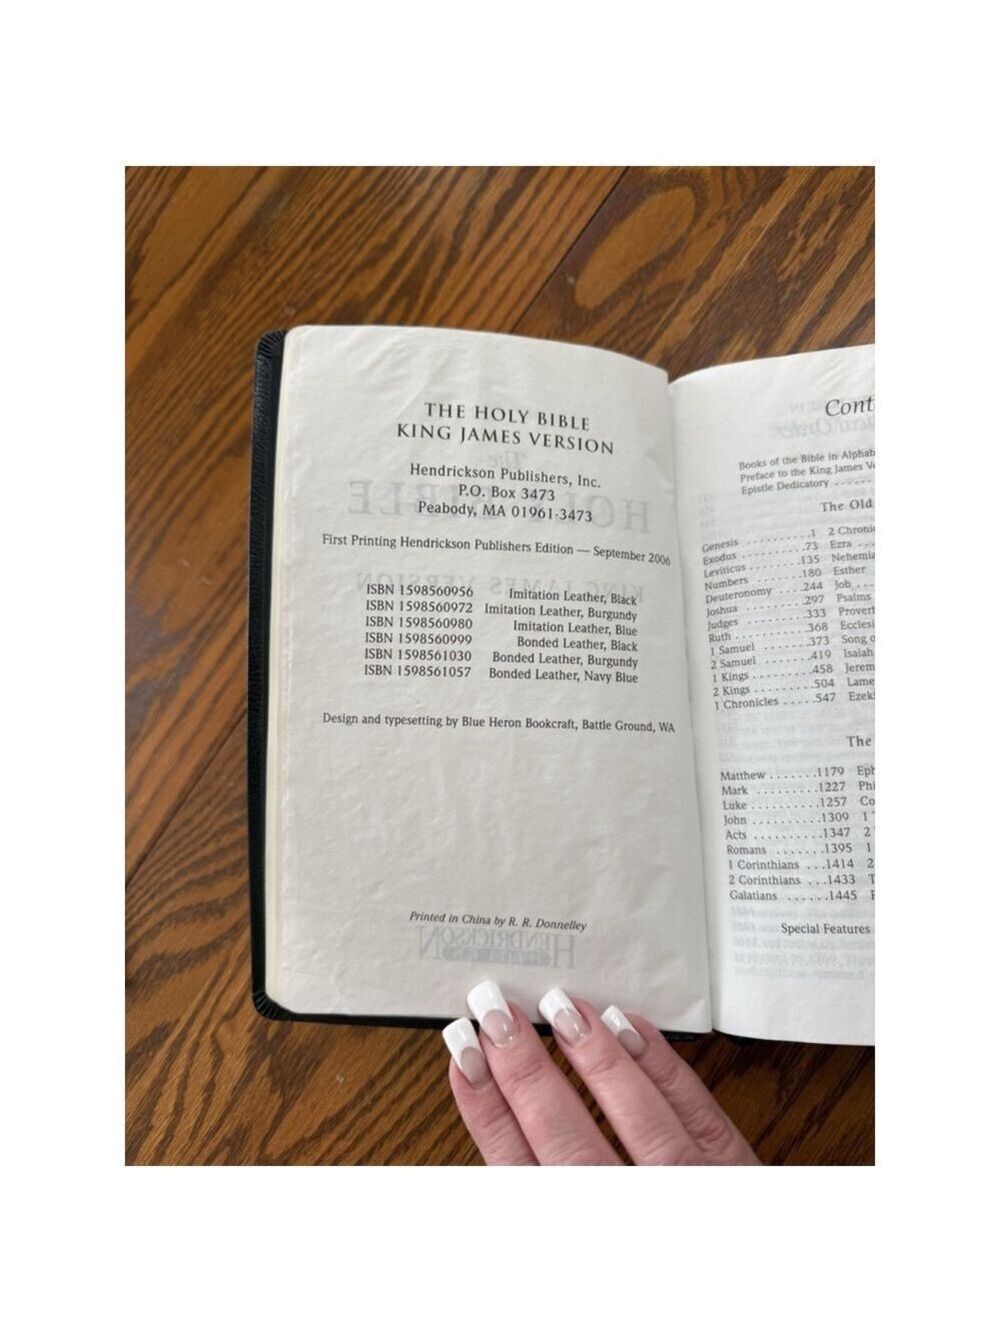 THE HOLY BIBLE
KING JAMES VERSION
Hendrickson Publishers, Inc.
P.O. Box 3473
Peabody, MA 01961-3473
First Printing Hendrickson Publishers Edition — September 2006
ISBN 1598560956 Imitation Leather, Black
ISBN 1598560972 Imitation Leather, Burgundy
ISBN 1598560980 Imitation Leather, Blue
ISBN 1598560999 Bonded Leather, Black
ISBN 1598561030 Bonded Leather, Burgundy
ISBN 1598561057 Bonded Leather, Navy Blue
Design and typesetting by Blue Heron Bookcraft, Battle Ground, WA
Printed in China by R. R. Donnelley
Cont
Books of the Bible in Alphab
Preface to the King James Ve
Epistle Dedicatory ......
The Old
Genesis ..........1 2 Chronic
Exodus ..........73 Ezra ...
Leviticus ........135 Nehemia
Numbers .......180 Esther
Deuteronomy ....244 Job ...
Joshua .........297 Psalms
Judges .........333 Proverb
Ruth ..........368 Ecclesi
1 Samuel .......373 Song o
2 Samuel .......419 Isaiah
1 Kings ........458 Jerem
2 Kings ........504 Lame
1 Chronicles .....547 Ezeki
The
Matthew .......1179 Eph
Mark .........1227 Phi
Luke ..........1257 Co
John ..........1309 1
Acts .........1347 2
Romans .......1395 1
1 Corinthians ...1414 2
2 Corinthians ...1433 T
Galatians ......1445
Special Features